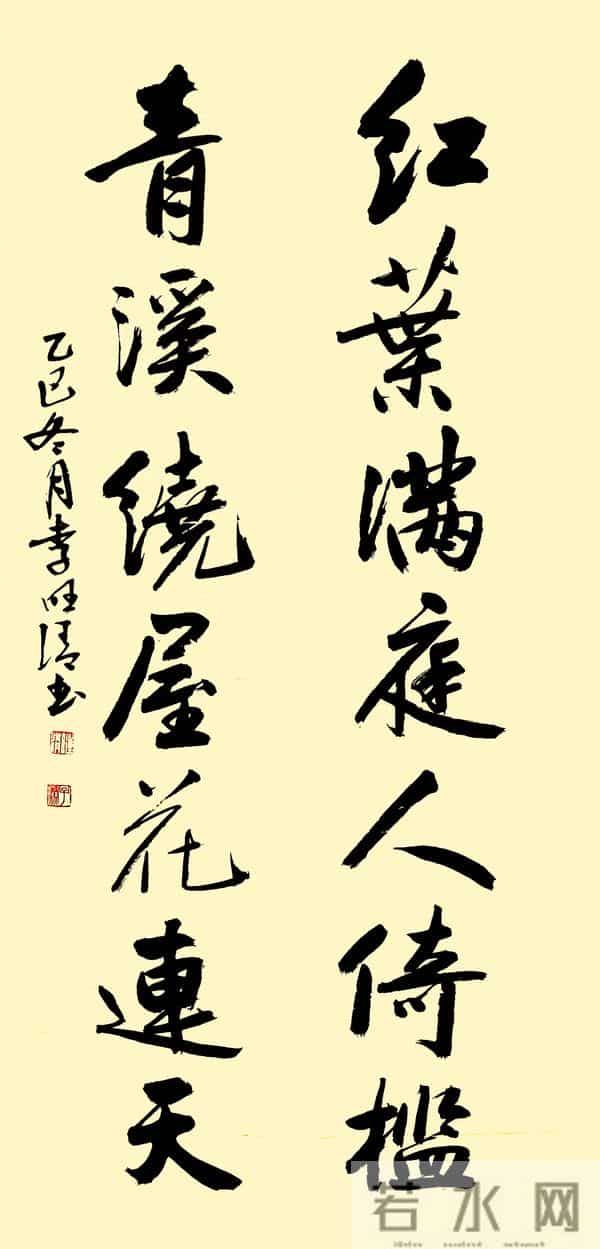 红葉满庭人倚槛
青溪繞屋花連天
乙巳冬月李旺清书
若水网